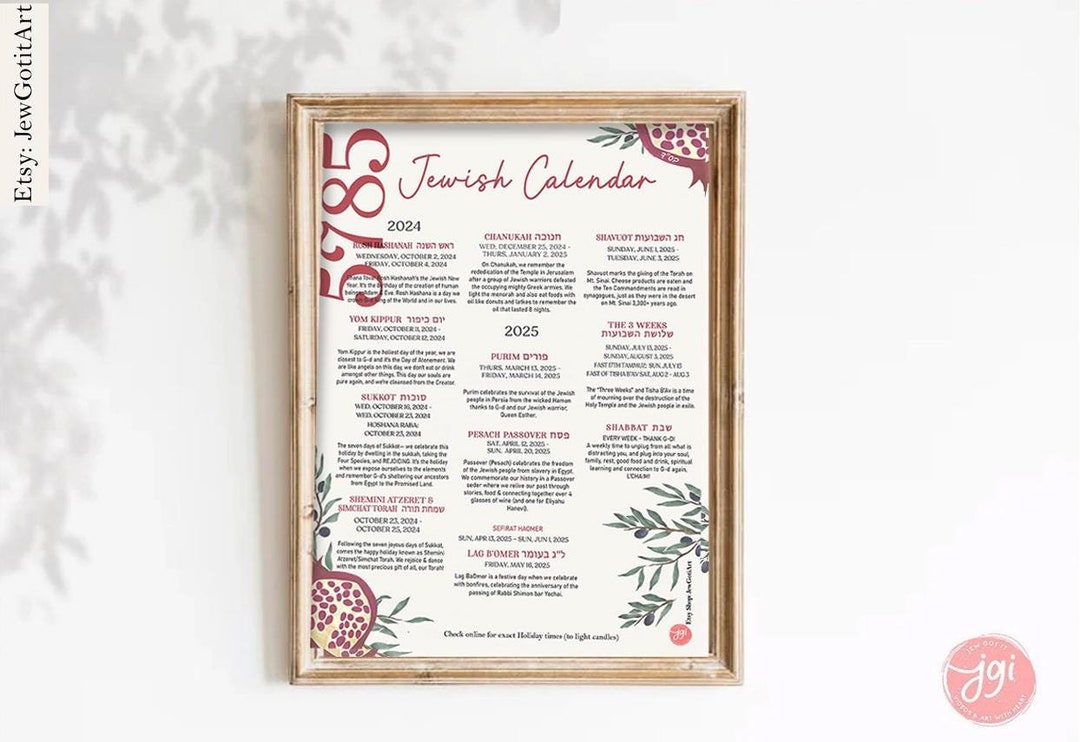 Etsy: JewGotitArt
5785
Jewish Calendar
2024
ROSH HASHANAH ראש השנה
WEDNESDAY, OCTOBER 2, 2024 -
FRIDAY, OCTOBER 4, 2024
Shana Tova! Rosh Hashanah's the Jewish New
Year. It's the birthday of the creation of human
beings-Adam & Eve. Rosh Hashana is a day we
crown G-d King of the World and in our lives.
YOM KIPPUR יום כיפור
FRIDAY, OCTOBER 11, 2024 -
SATURDAY, OCTOBER 12, 2024
Yom Kippur is the holiest day of the year, we are
closest to G-d and it's the Day of Atonement. We
are like angels on this day, we don't eat or drink
amongst other things. This day our souls are
pure again, and we're cleansed from the Creator.
SUKKOT סוכות
WED, OCTOBER 16, 2024 -
WED, OCTOBER 23, 2024
HOSHANA RABA:
OCTOBER 23, 2024
The seven days of Sukkot— we celebrate this
holiday by dwelling in the sukkah, taking the
Four Species, and REJOICING. It's the holiday
when we expose ourselves to the elements
and remember G-d's sheltering our ancestors
from Egypt to the Promised Land.
SHEMINI ATZERET &
SIMCHAT TORAH שמחת תורה
OCTOBER 23, 2024 -
OCTOBER 25, 2024
Following the seven joyous days of Sukkat,
comes the happy holiday known as Shemini
Atzeret/Simchat Torah. We rejoice & dance
with the most precious gift of all, our Torah!
CHANUKAH חנוכה
WED, DECEMBER 25, 2024 -
THURS, JANUARY 2, 2025
On Chanukah, we remember the
rededication of the Temple in Jerusalem
after a group of Jewish warriors defeated
the occupying mighty Greek armies. We
light the menorah and also eat foods with
oil like donuts and latkes to remember the
oil that lasted 8 nights.
2025
PURIM פורים
THURS. MARCH 13, 2025 -
FRIDAY, MARCH 14, 2025
Purim celebrates the survival of the Jewish
people in Persia from the wicked Haman
thanks to G-d and our Jewish warrior,
Queen Esther.
PESACH PASSOVER פסח
SAT, APRIL 12, 2025 -
SUN, APRIL 20, 2025
Passover (Pesach) celebrates the freedom
of the Jewish people from slavery in Egypt.
We commemorate our history in a Passover
seder where we relive our past through
stories, food & connecting together over 4
glasses of wine (and one for Eliyahu
Hanevi).
SEFIRAT HAOMER
SUN, APR 13, 2025 – SUN, JUN 1, 2025
LAG B'OMER ל"ג בעומר
FRIDAY, MAY 16, 2025
Lag BaOmer is a festive day when we celebrate
with bonfires, celebrating the anniversary of the
passing of Rabbi Shimon bar Yochai.
SHAVUOT חג השבועות
SUNDAY, JUNE 1, 2025 -
TUESDAY, JUNE 3, 2025
Shavuot marks the giving of the Torah on
Mt. Sinai. Cheese products are eaten and
the Ten Commandments are read in
synagogues, just as they were in the desert
on Mt. Sinai 3,300+ years ago.
THE 3 WEEKS
שלושת השבועות
SUNDAY, JULY 13, 2025 -
SUNDAY, AUGUST 3, 2025
FAST 17TH TAMMUZ: SUN, JULY 13
FAST OF TISHA B'AV SAT, AUG 2 - AUG 3
The "Three Weeks" and Tisha B'Av is a time
of mourning over the destruction of the
Holy Temple and the Jewish people in exile.
SHABBAT שבת
EVERY WEEK - THANK G-D!
A weekly time to unplug from all what is
distracting you, and plug into your soul,
family, rest, good food and drink, spiritual
learning and connection to G-d again,
L'CHAIM!
Etsy Shop: JewGotitArt
jgi
Check online for exact Holiday times (to light candles)
JEW GOT IT
jgi
VIDEOS & ART WITH HEART